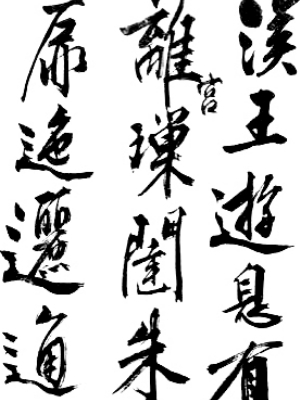 漢王遊息有
離宮璅闥朱
扉迤邐通